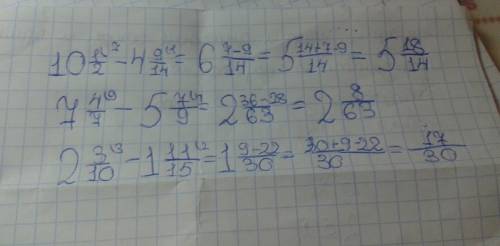 10 1/2^7 - 4 9/14^1 = 6 7-9/14 = 5 14+7-9/14 = 5 18/14
7 4/7^9 - 5 7/9^7 = 2 36-28/63 = 2 8/63
2 3/10^3 - 1 11/15^2 = 1 9-22/30 = 30+9-22/30 = 17/30